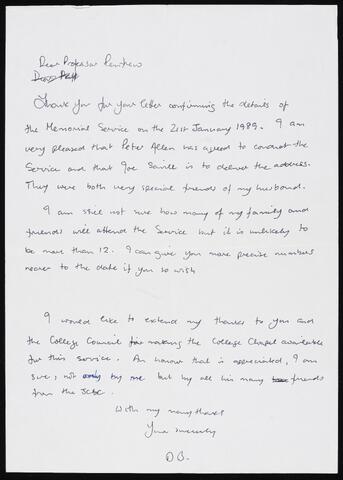 Dear Professor Renfrew
Dear Prof
Thank you for your letter confirming the details of
the Memorial Service on the 21st January 1989. I am
very pleased that Peter Allen has agreed to conduct the
Service and that Joe Saville is to deliver the address.
They were both very special friends of my husband.
I am still not sure how many of my family and
friends will attend the Service but it is unlikely to
be more than 12. I can give you more precise numbers
nearer to the date if you so wish
I would like to extend my thanks to you and
the College Council for making the College Chapel available
for this service. An honour that is appreciated, I am
sure, not only by me but by all his many friends
from the
With my many thanks
Yours sincerely
D B.